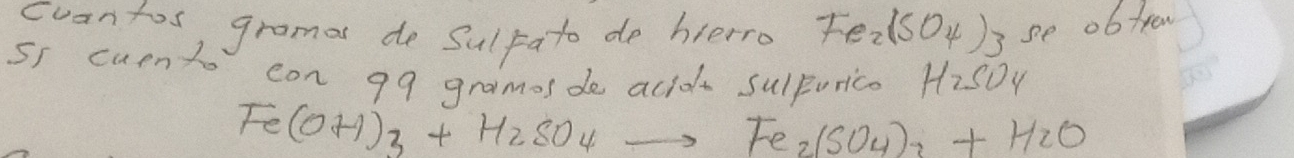 Cuantos gramos de Sulfato de hierro Fe₂(SO₄)₃ se obtien
Si cuento con 99 gramos de acido sulfurico H₂SO₄
Fe(OH)₃ + H₂SO₄ → Fe₂(SO₄)₃ + H₂O